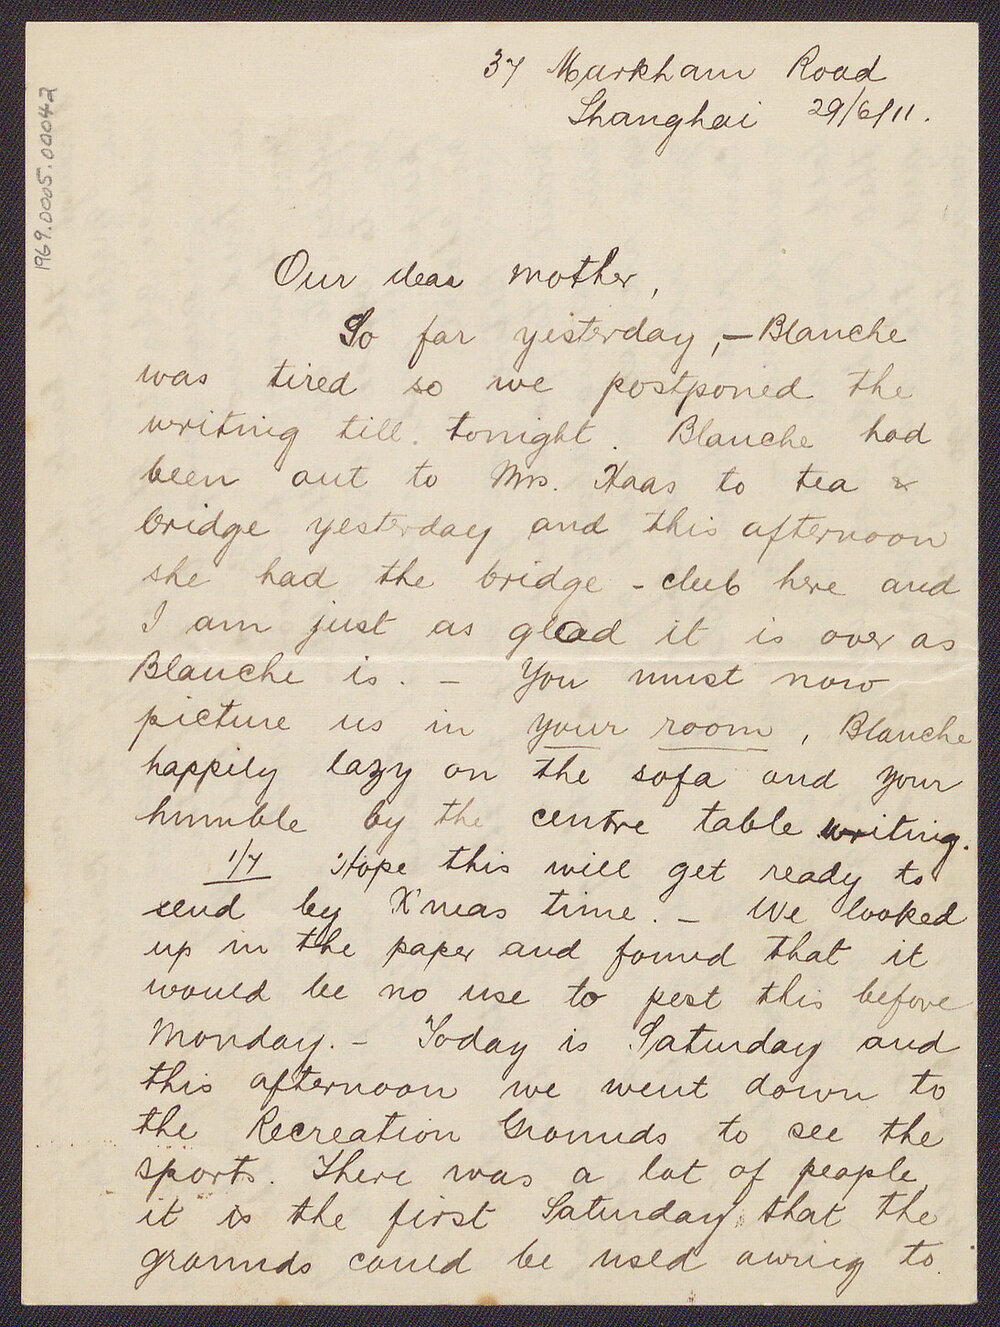 1969.0005.00042
37 Markham Road
Shanghai 29/6/11.
Our dear Mother,
So far yesterday, – Blanche
was tired so we postponed the
writing till tonight. Blanche had
been out to Mrs. Haas to tea &
bridge yesterday and this afternoon
she had the bridge-club here and
I am just as glad it is over as
Blanche is. – You must now
picture us in your room, Blanche
happily lazy on the sofa and your
humble by the centre table writing.
1/7 Hope this will get ready to
send by X'mas time. – We looked
up in the paper and found that it
would be no use to post this before
Monday. – Today is Saturday and
this afternoon we went down to
the Recreation Grounds to see the
sports. There was a lot of people,
it is the first Saturday that the
grounds could be used owing to